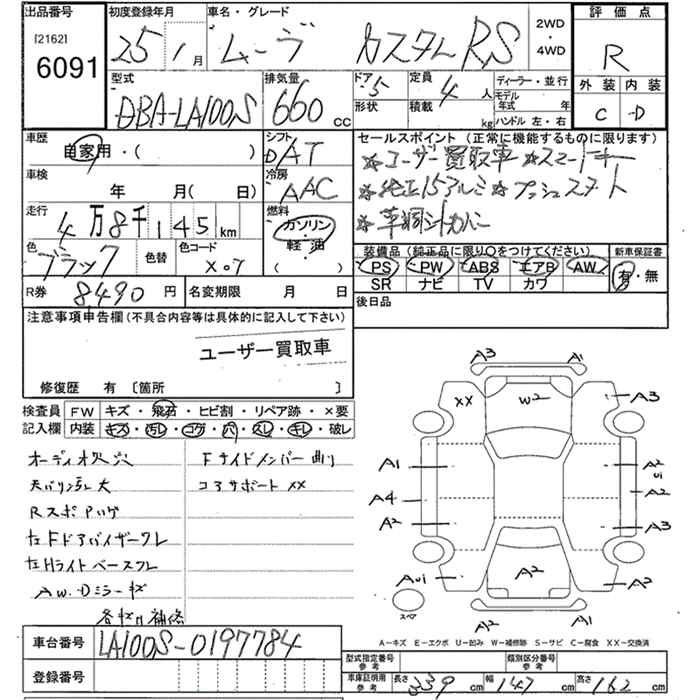 出品番号 初度登録年月 車名・グレード 2WD・4WD 評価点
[2162]
6091 25年1月 ムーヴ カスタムRS R
型式 排気量 ドア 5 定員 4人 ディーラー・並行 外装 内装
DBA-LA100S 660cc 形状 積載 kg モデル年式 年 C D
ハンドル 左・右
車歴 シフト セールスポイント (正常に機能するものに限ります)
自家用・( ) DAT *ユーザー買取車 *スマートキー
車検 冷房 *純正15アルミ *プッシュスタート
年 月( 日) AAC *革調シートカバー
走行 燃料
4万8千145km ガソリン・軽油
色 色替 色コード ( ) 装備品 (純正品に限り○をつけてください) 新車保証書
ブラック X07 PS PW ABS エアB AW 有・無
R券 8,490円 名変期限 月 日 SR ナビ TV カワ
注意事項申告欄(不具合内容等は具体的に記入して下さい) 後日品
ユーザー買取車
修復歴 有 [箇所 ]
検査員 FW キズ・飛石・ヒビ割・リペア跡・×要
記入欄 内装 キズ・汚レ・コゲ・穴・スレ・キレ・破レ
オーディオ択穴 Fサイドメンバー曲り
コアサポートXX
左Fドアバイザーワレ
左Hライトベースワレ
AW.Dミラーキズ
各キズ補修
A3 A1
XX W2 A3
A1 A2
Ui
A4 A2
A2 A3
AUi A2 A2
スペア A2 A1
A-キズ E-エクボ U-凹み W-補修跡 S-サビ C-腐食 XX-交換済
車台番号 LA100S-0197784
登録番号
型式指定番号参考 類別区分番号参考
車庫証明用参考 長さ 339cm 幅 147cm 高さ 162cm